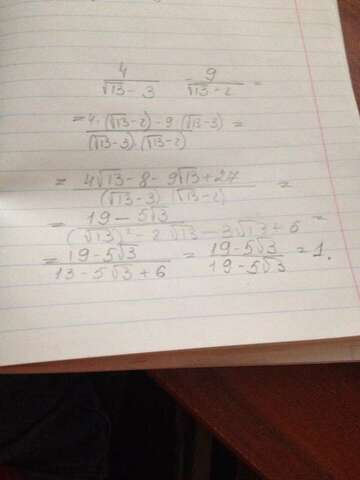 4/(√13 - 3) - 9/(√13 - 2) =
= (4·(√13-2) - 9·(√13-3))/((√13-3)·(√13-2)) =
= (4√13 - 8 - 9√13 + 27)/((√13-3)·(√13-2)) =
= (19 - 5√13)/((√13)² - 2√13 - 3√13 + 6) =
= (19 - 5√13)/(13 - 5√13 + 6) = (19 - 5√13)/(19 - 5√13) = 1.